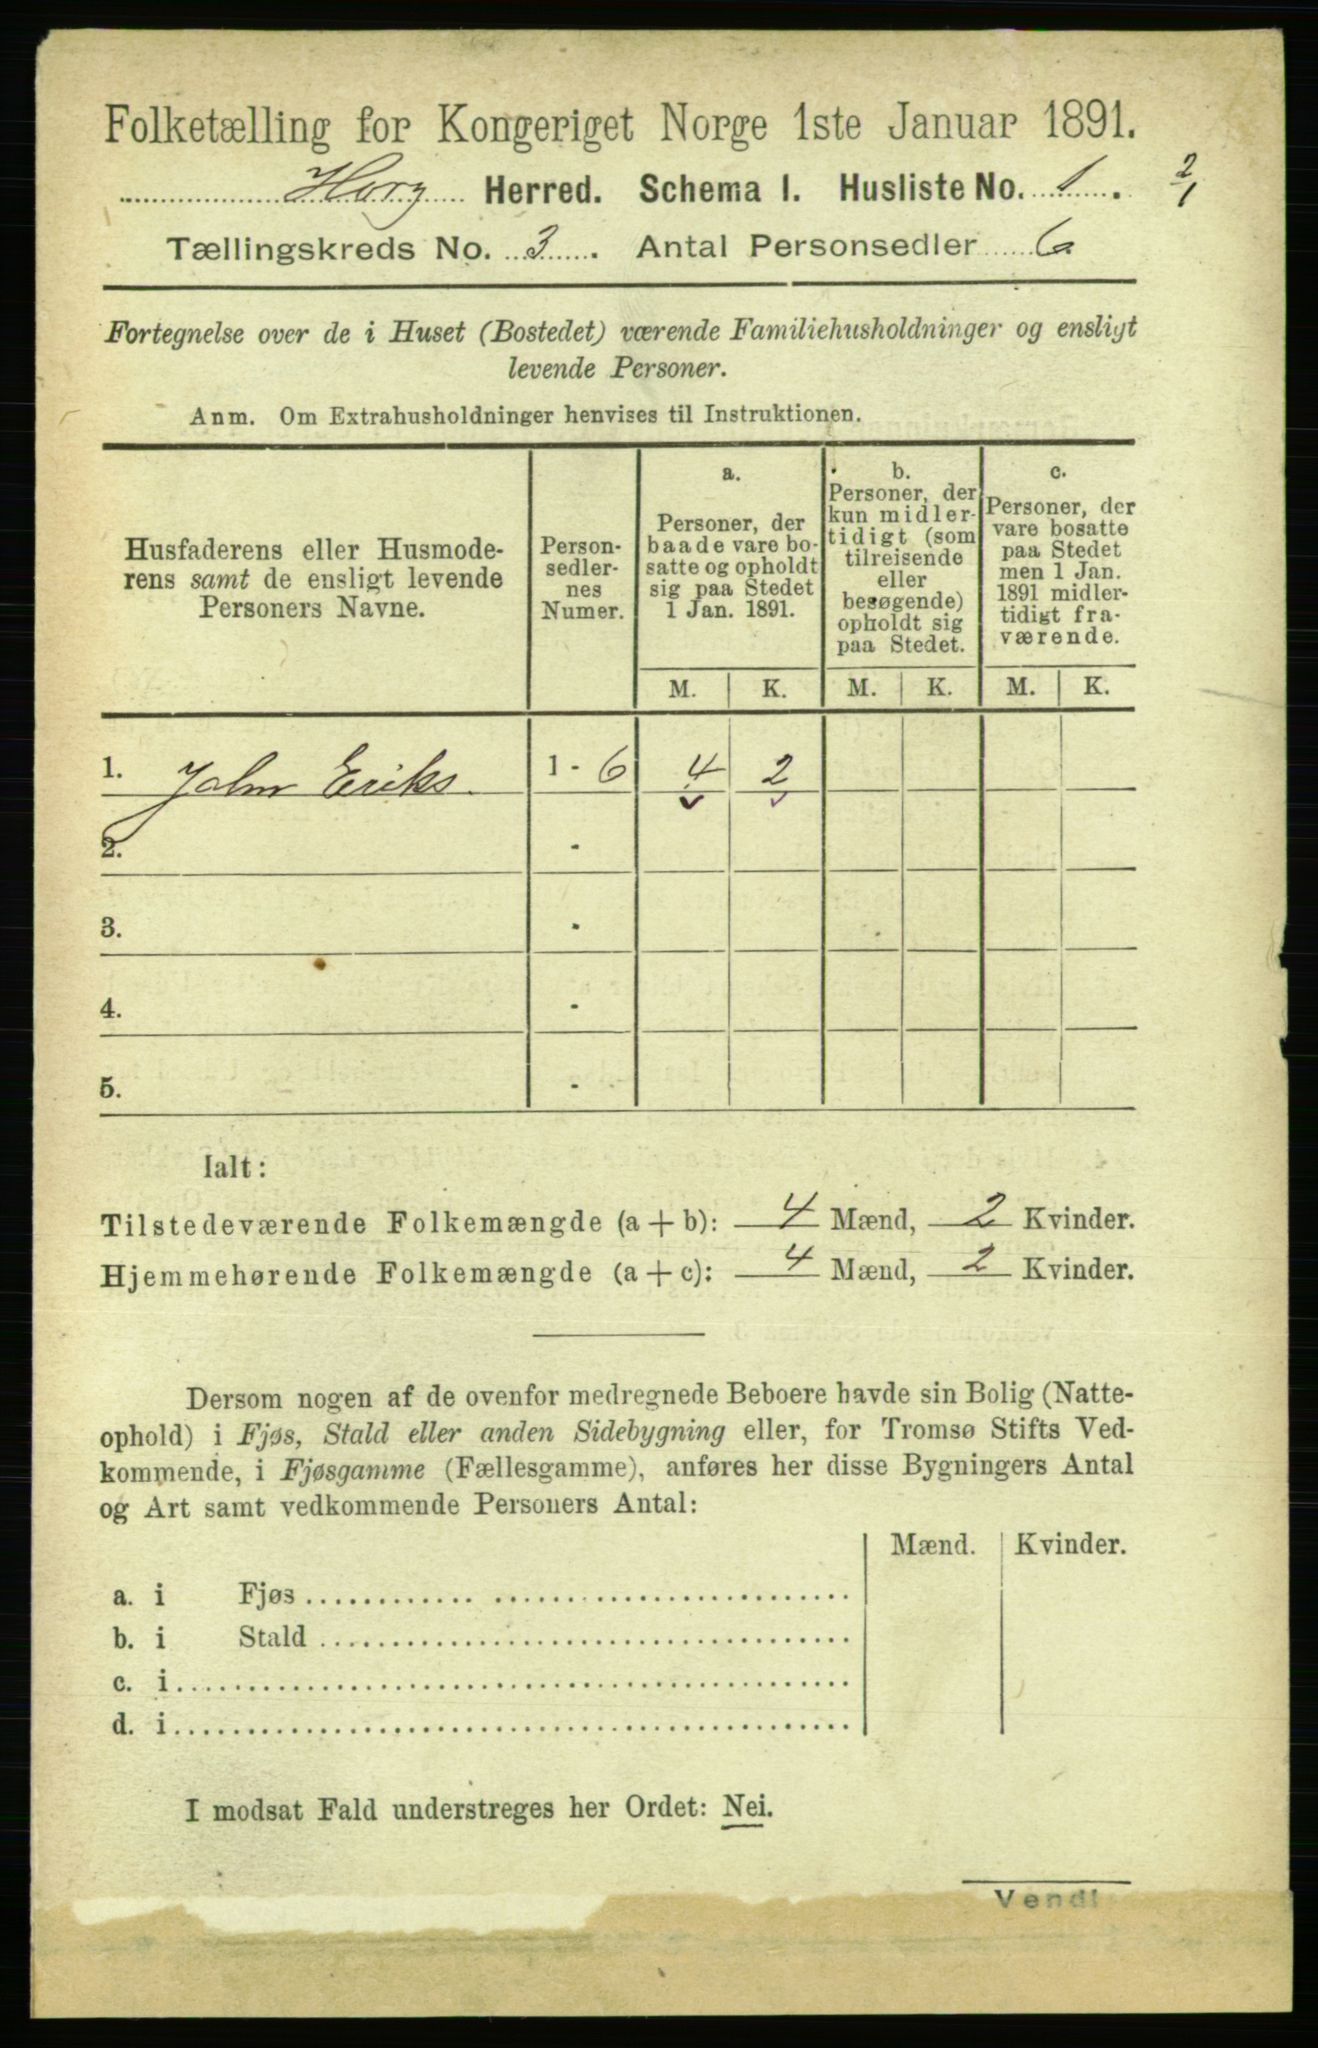 Folketælling for Kongeriget Norge 1ste Januar 1891.
Horg Herred. Schema I. Husliste No. 1. 2/1
Tællingskreds No. 3. Antal Personsedler 6
Fortegnelse over de i Huset (Bostedet) værende Familiehusholdninger og ensligt
levende Personer.
Anm. Om Extrahusholdninger henvises til Instruktionen.
Husfaderens eller Husmode-
rens samt de ensligt levende
Personers Navne.
Person-
sedler-
nes
Numer.
a.
Personer, der
baade vare bo-
satte og opholdt
sig paa Stedet
1 Jan. 1891.
b.
Personer, der
kun midler-
tidigt (som
tilreisende
eller
besøgende)
opholdt sig
paa Stedet.
c.
Personer, der
vare bosatte
paa Stedet
men 1 Jan.
1891 midler-
tidigt fra-
værende.
M. K. M. K. M. K.
1. John Eriks. 1 - 6 4 2
2. -
3. -
4. -
5. -
Ialt:
Tilstedeværende Folkemængde (a + b): 4 Mænd, 2 Kvinder.
Hjemmehørende Folkemængde (a + c): 4 Mænd, 2 Kvinder.
Dersom nogen af de ovenfor medregnede Beboere havde sin Bolig (Natte-
ophold) i Fjøs, Stald eller anden Sidebygning eller, for Tromsø Stifts Ved-
kommende, i Fjøsgamme (Fællesgamme), anføres her disse Bygningers Antal
og Art samt vedkommende Personers Antal:
Mænd. Kvinder.
a. i Fjøs
b. i Stald
c. i
d. i
I modsat Fald understreges her Ordet: Nei.
Vend!